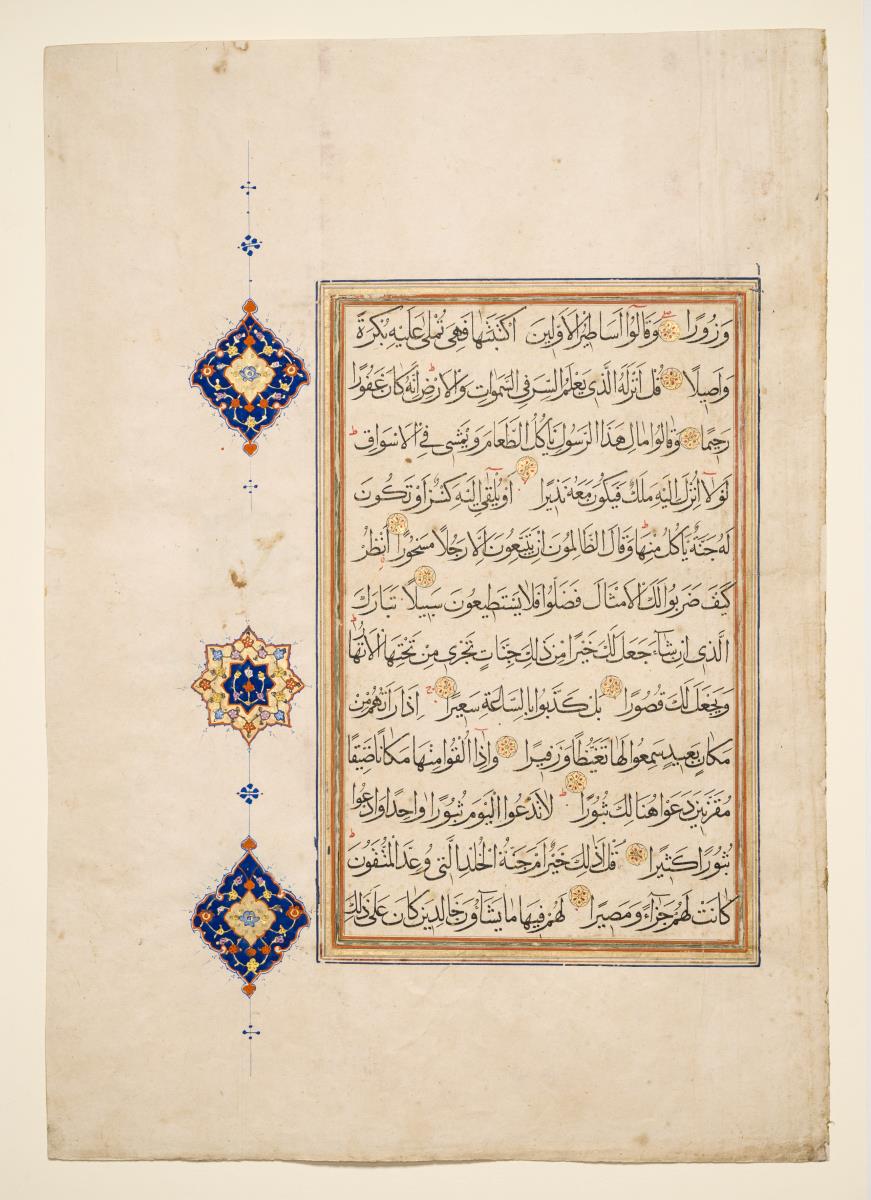 وَزُورًا وَقَالُوا أَسَاطِيرُ الْأَوَّلِينَ اكْتَتَبَهَا فَهِيَ تُمْلَى عَلَيْهِ بُكْرَةً
وَأَصِيلًا قُلْ أَنْزَلَهُ الَّذِي يَعْلَمُ السِّرَّ فِي السَّمٰوَاتِ وَالْأَرْضِ إِنَّهُ كَانَ غَفُورًا
رَحِيمًا وَقَالُوا مَالِ هَذَا الرَّسُولِ يَأْكُلُ الطَّعَامَ وَيَمْشِي فِي الْأَسْوَاقِ
لَوْلَا أُنْزِلَ إِلَيْهِ مَلَكٌ فَيَكُونَ مَعَهُ نَذِيرًا أَوْ يُلْقَى إِلَيْهِ كَنْزٌ أَوْ تَكُونُ
لَهُ جَنَّةٌ يَأْكُلُ مِنْهَا وَقَالَ الظَّالِمُونَ إِنْ تَتَّبِعُونَ إِلَّا رَجُلًا مَسْحُورًا انْظُرْ
كَيْفَ ضَرَبُوا لَكَ الْأَمْثَالَ فَضَلُّوا فَلَا يَسْتَطِيعُونَ سَبِيلًا تَبَارَكَ
الَّذِي إِنْ شَاءَ جَعَلَ لَكَ خَيْرًا مِنْ ذَلِكَ جَنَّاتٍ تَجْرِي مِنْ تَحْتِهَا الْأَنْهَارُ
وَيَجْعَلْ لَكَ قُصُورًا بَلْ كَذَّبُوا بِالسَّاعَةِ سَعِيرًا إِذَا رَأَتْهُمْ مِنْ
مَكَانٍ بَعِيدٍ سَمِعُوا لَهَا تَغَيُّظًا وَزَفِيرًا وَإِذَا أُلْقُوا مِنْهَا مَكَانًا ضَيِّقًا
مُقَرَّنِينَ دَعَوْا هُنَالِكَ ثُبُورًا لَا تَدْعُوا الْيَوْمَ ثُبُورًا وَاحِدًا وَادْعُوا
ثُبُورًا كَثِيرًا قُلْ أَذَلِكَ خَيْرٌ أَمْ جَنَّةُ الْخُلْدِ الَّتِي وُعِدَ الْمُتَّقُونَ
كَانَتْ لَهُمْ جَزَاءً وَمَصِيرًا لَهُمْ فِيهَا مَا يَشَاؤُنَ خَالِدِينَ كَانَ عَلَى ذَلِكَ